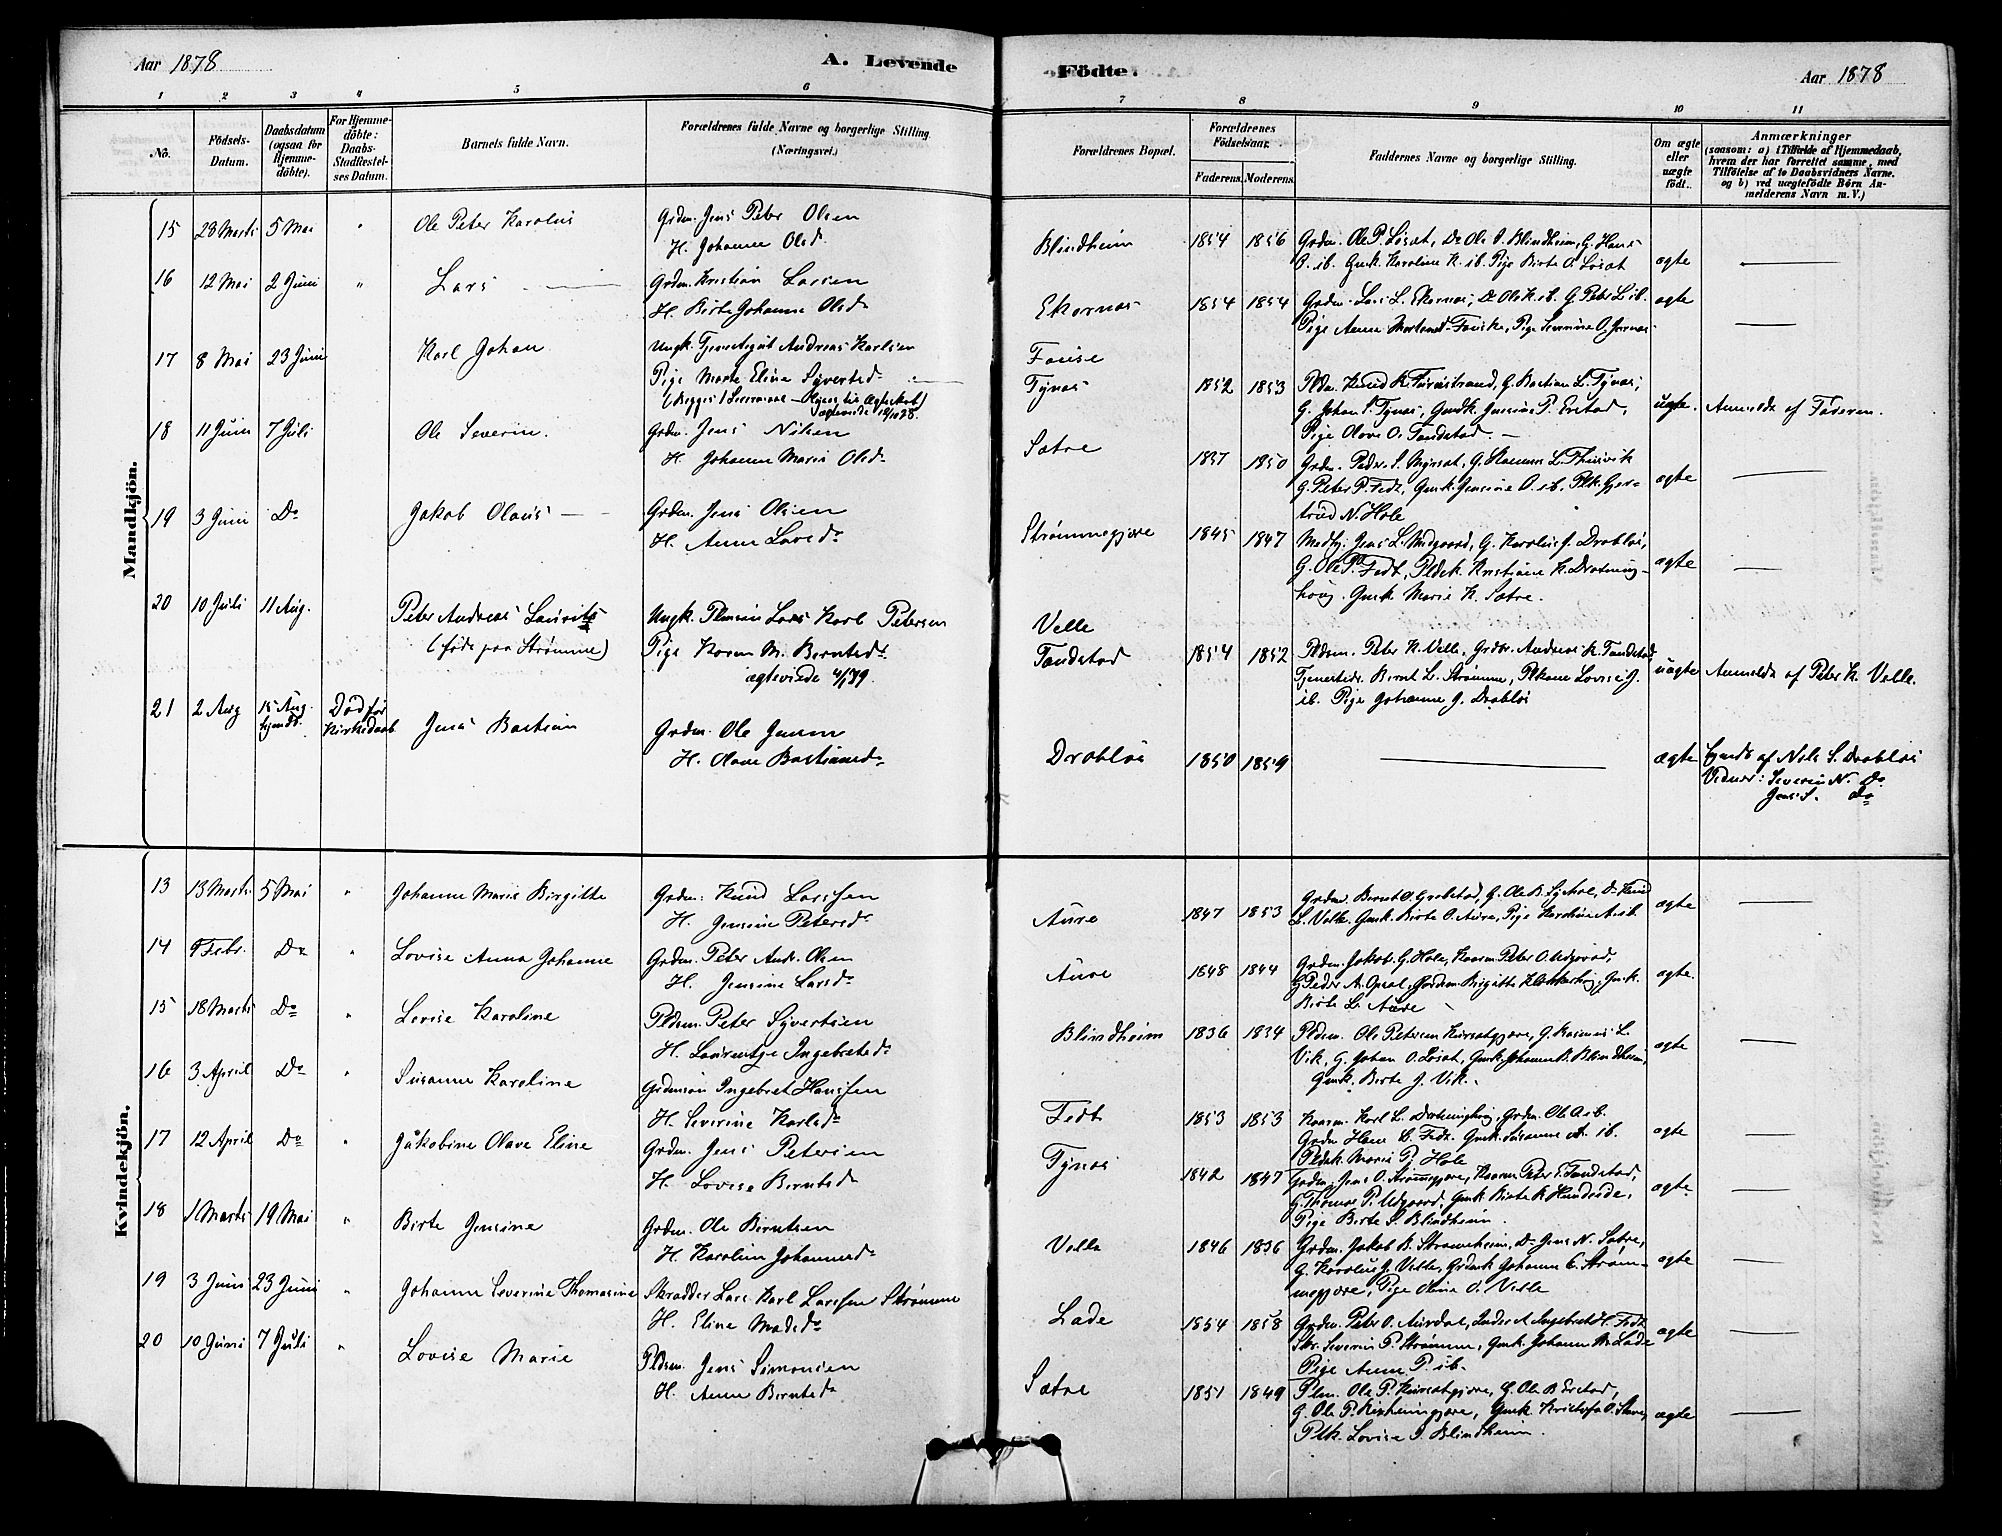 Aar 1878
A. Levende
Födte.
Aar 1878
1 2 3 4 5 6 7 8 9 10 11
No.
Födsels-Datum.
Daabsdatum (ogsaa for Hjemme-döbte).
For Hjemme-döbte: Daabs-Stadfæstel-ses Datum.
Barnets fulde Navn.
Forældrenes fulde Navne og borgerlige Stilling.
(Næringsvei.)
Forældrenes Bopæl.
Forældrenes Födselsaar.
Faderens. Moderens.
Faddernes Navne og borgerlige Stilling.
Om ægte eller uægte födt.
Anmærkninger
(saasom: a) i Tilfælde af Hjemmedaab,
hvem der har forrettet samme, med
Tilföielse af to Daabsvidners Navne.
og b) ved uægtefödte Börn An-
melderens Navn m. V.)
Mandkjön.
15 23 Marts 5 Mai " Ole Peter Karolus
Grdm. Jens Peter Olsen
H. Johanne Olsd.
Blindheim 1854 1856
Grdm. Ole P. Løsæt, Do Ole P. Blindheim, G. Hans
O. ib. Gmk. Karoline K. ib. Pige Birte O. Løsæt
ægte
16 12 Mai 2 Juni " Lars
Grdm. Kristian Larsen
H. Birte Johanne Olsd.
Ekornæs 1854 1854
Grdm. Lars L. Ekornæs, Do Ole K. ib. G. Peter L. ib.
ægte
17 8 Mai 23 Juni Karl Johan
Ungk. Andreas Karlsen
Pige Marte Eline Syvertsd.
Fause
Tynæs 1852 1853
G. Bastian L. Tynæs,
G. Johan S. Tynæs, Gmdk. Jensine P. Erstad,
Pige Olave O. Tandstad.
uægte. Anmeldt af Faderen.
18 11 Juni 7 Juli Ole Severin.
Grdm. Jens Nilsen
H. Johanne Marie Olsd.
Sætre 1837 1850
G. Peter P. Fedt, Gmk. Jensine O. ib. Plk. Gjer-
trud N. Hole
ægte
19 3 Juni Do Jakob Olaus
Grdm. Jens Olsen
H. Anne Larsd.
Strømmegjære 1845 1847
Medhj. Jens L. Midgaard, G. Karolus J. Drabløs,
G. Ole P. Fedt, Pldsk. Kristiane K. Drotning-
houg. Gmk. Marie K. Sætre.
ægte
20 10 Juli 11 Aug. Peter Andreas Laurits
(født paa Strømme)
Ungk. Lars Karl Petersen
Pige Karen M. Berntsd.
Velle
Tandstad 1854 1852
Pldsm. Peter K. Velle, Grdbr. Andreas K. Tandstad
Bernt L. Strømme, Plkone Lovise J.
ib. Pige Johanne J. Drabløs
uægte Anmeldt af Peter K. Velle.
21 2 Aug 15 Aug.
Død før
Kirkedaab
Jens Bastian
Grdm. Ole Jensen
H. Olave Bastiansd.
Drabløs 1850 1859
ægte
af Nils S. Drabløs
Vidner: Severin N. Do
Jens S. Do
Kvindekjön.
13 13 Marts 5 Mai " Johanne Marie Birgitte
Grdm. Knud Larssen
H. Jensine Petersd.
Aure 1847 1853
Grdm. Bernt O. Grebstad, G. Ole B. Do Knud
L. Velle. Gmk. Birte O. Aure, Pige
ægte
14 9 Febr. Do " Lovise Anna Johanne
Grdm. Peter Andr. Olsen
H. Jensine Larsd.
Aure 1848 1844
Grdm. Jakob G. Hole, Peter O. Midgaard,
Birte L. Aure
ægte.
15 18 Marts Do " Lovise Karoline
Pldsm. Peter Syvertsen
H. Laurentse Ingebrtsd.
Blindheim 1836 1834
Pldsm. Ole Petersen G. Rasmus L.
Vik, G. Johan O. Løsæt, Gmk. Johanne B. Blindheim,
Gmk. Birte J. Vik.
ægte
16 3 April Do " Susanne Karoline
Ingebret Hanssen
H. Severine Karlsd.
Fedt 1853 1853
Karl L. Drotninghoug, Grdm. Ole A. ib.
Grdm. Hans B. Fedt. Gmk. Susanne A. ib.
Pldsk. Marie P. Hole
ægte
17 12 April Do " Jakobine Olave Eline
Grdm. Jens Petersen
H. Lovise Berntsd.
Tynæs 1842 1847
Grdm. Jens O. Strømmegjære, Peter E. Tandstad,
G. Thomas P. Midgaard, Gmk. Birte K.
Pige Birte S. Blindheim.
ægte.
18 1 Marts 19 Mai " Birte Jensine
Grdm. Ole Berntsen
H. Karoline Johannesd.
Velle 1846 1836
Grdm. Jakob B. Strømsheim, Do Jens N. Sætre,
G. Karolus J. Velle, Grdmk. Johanne E. Strøm-
megjære, Pige Olina O. Velle
ægte
19 3 Juni 23 Juni " Johanne Severine Thomasine
Skrædder Lars Karl Larssen Strømme
H. Eline Madsd.
Lade 1854 1858
Grdm. Peter O. Aursdal, Ingebret H. Fedt
Skr. Severin P. Strømme, Gmk. Johanne M. Lade
Pige Anne P. ib.
ægte
20 10 Juni 7 Juli " Lovise Marie
Pldsm. Jens Simonsen
H. Anne Berntsd.
Sætre 1851 1849
Plm. Ole P. G. Ole B. Erstad,
G. Ole P.
Plk. Lovise P. Blindheim.
ægte